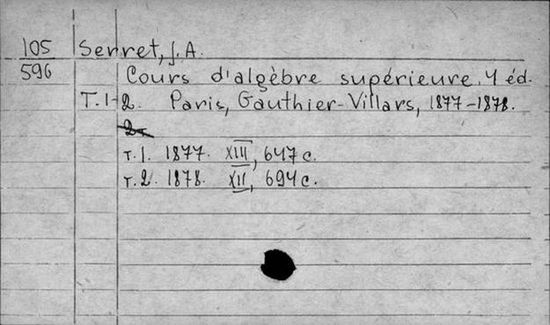 105 Serret, J. A.
596 Cours d'algèbre supérieure. 4 éd.
T. 1-2. Paris, Gauthier-Villars, 1877-1878.
2 т.
т. 1. 1877. XIII, 647 с.
т. 2. 1878. XII, 694 с.